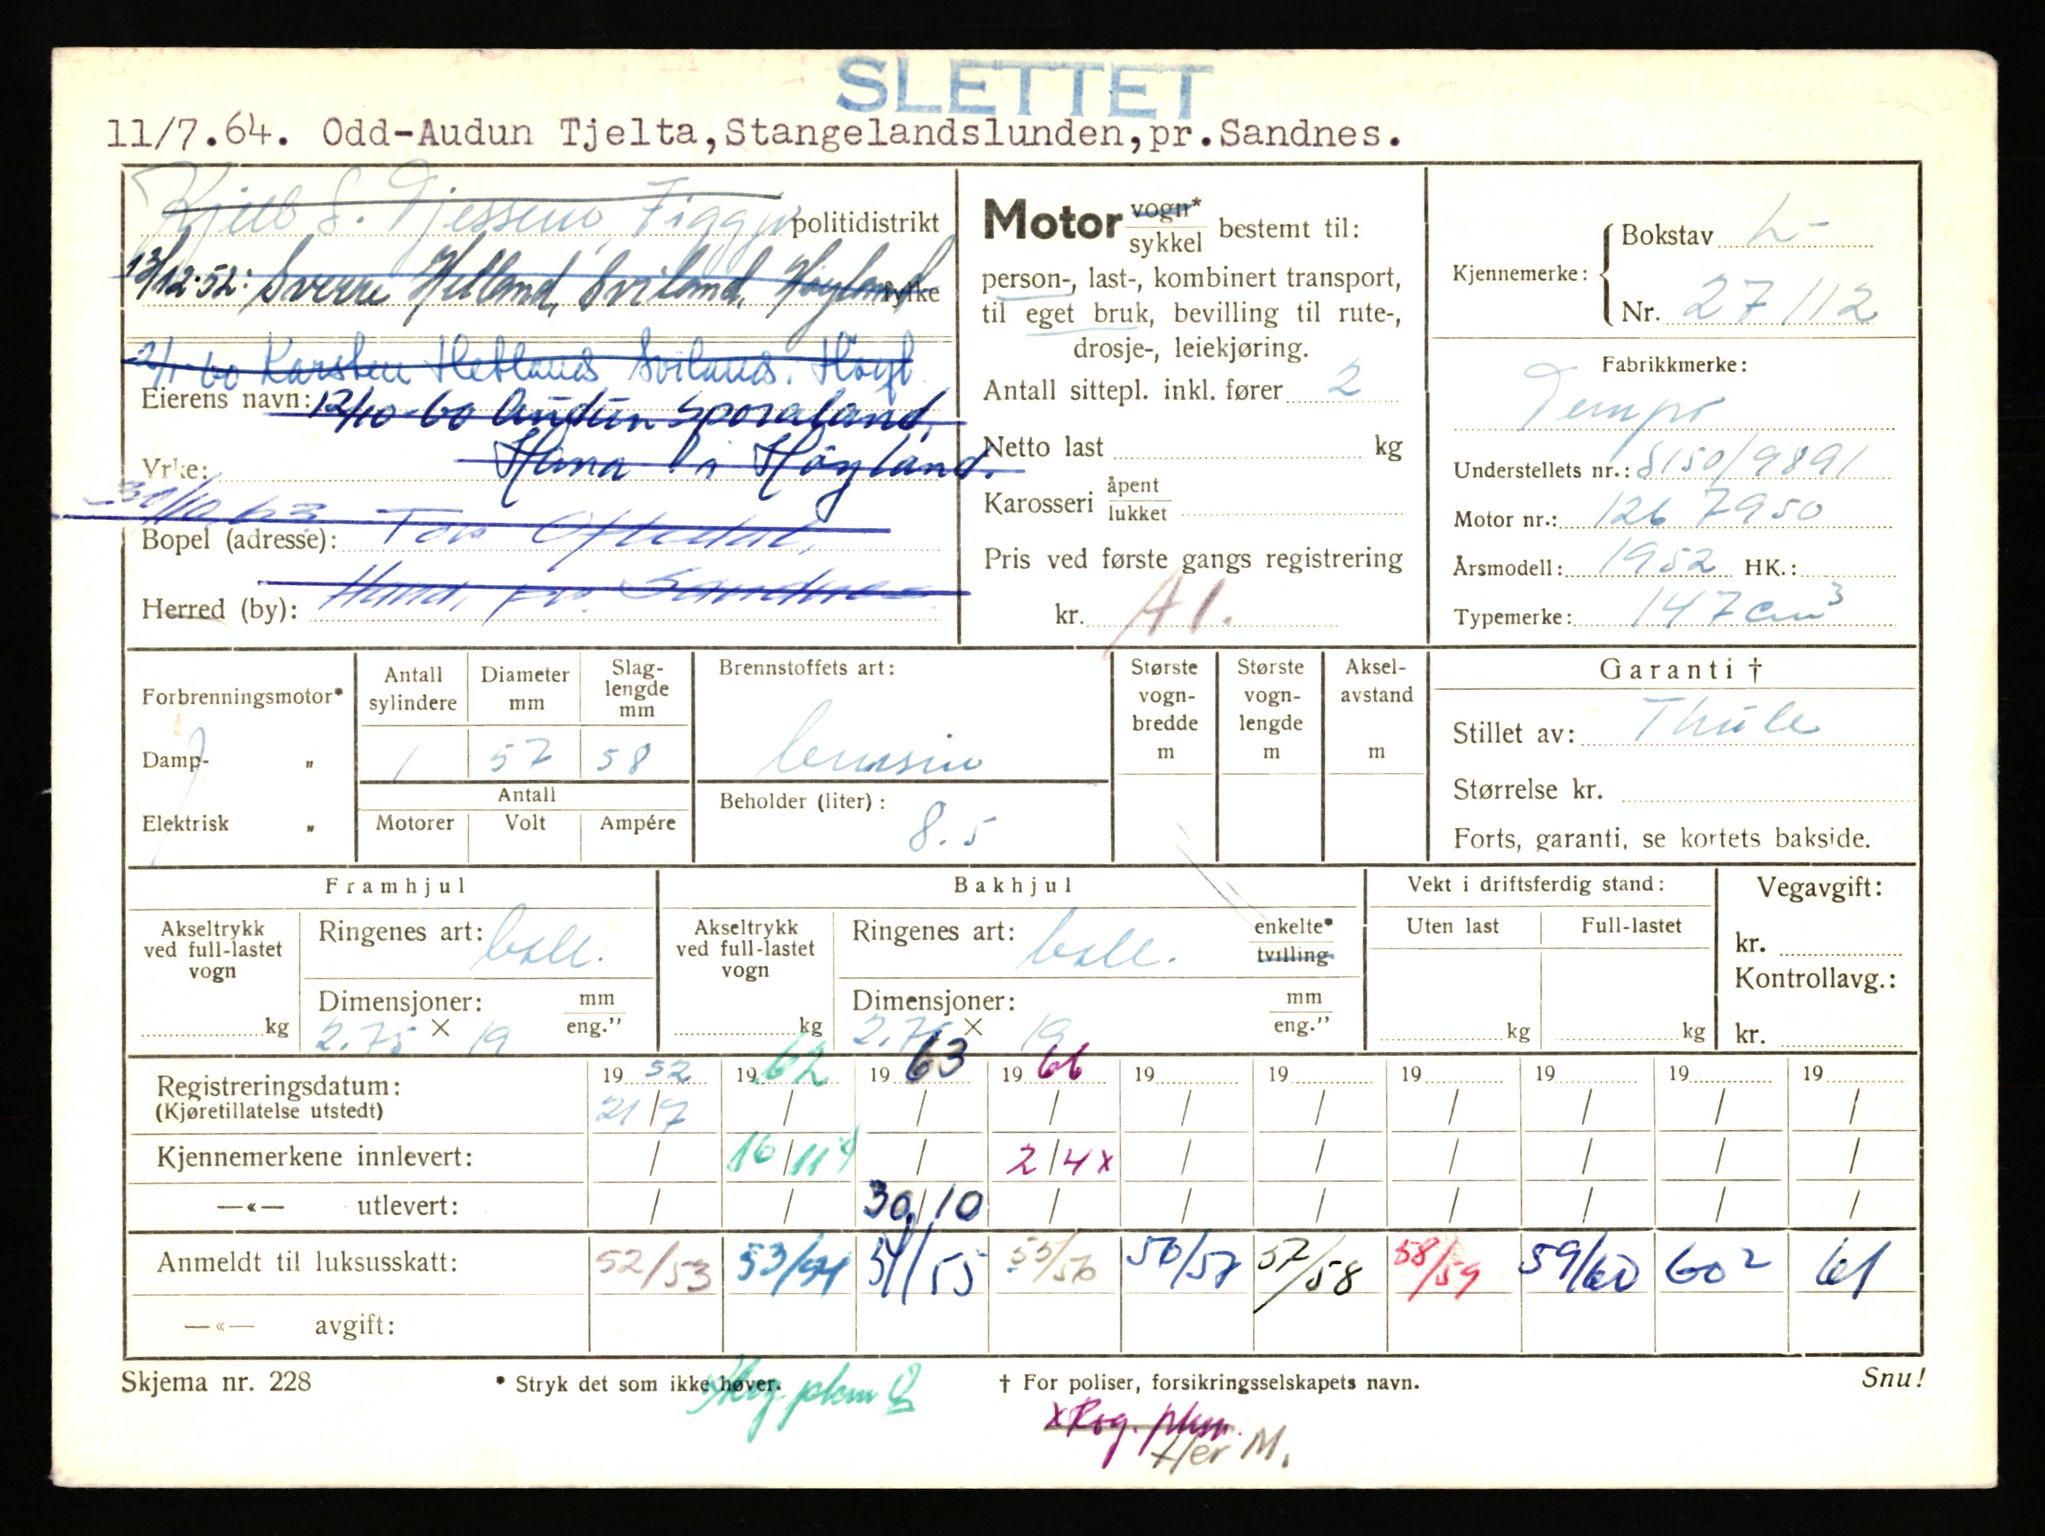 SLETTET
11/7.64. Odd-Audun Tjelta,Stangelandslunden,pr.Sandnes.
Figgjo politidistrikt
13/12-52: Sverre Hetland, Sviland, Høyland fylke
2/1-60 Karsten Hetland Sviland. Høyl.
Eierens navn: 12/10-60 Audun Sporaland,
Yrke: Hana i Høyland.
31/10 63
Bopel (adresse): Tor Oftedal,
Herred (by): Hana, pr. Sandnes.
Motor vogn* / sykkel bestemt til:
person-, last-, kombinert transport,
til eget bruk, bevilling til rute-,
drosje-, leiekjøring.
Antall sittepl. inkl. fører 2
Netto last kg
Karosseri åpent / lukket
Pris ved første gangs registrering
kr. A1.
Kjennemerke: Bokstav L-
Nr. 27112
Fabrikkmerke:
Tempo
Understellets nr.: S150/9891
Motor nr.: 126 7950
Årsmodell: 1952 HK.:
Typemerke: 147 cm³
Forbrenningsmotor*
Damp- „
Elektrisk „
Antall sylindere Diameter mm Slaglengde mm
1 57 58
Antall
Motorer Volt Ampére
Brennstoffets art:
bensin
Beholder (liter):
8.5
Største vogn-bredde m
Største vogn-lengde m
Aksel-avstand m
Garanti †
Stillet av: Thule
Størrelse kr.
Forts, garanti, se kortets bakside.
Framhjul
Akseltrykk ved full-lastet vogn kg
Ringenes art: ball.
Dimensjoner: mm / eng."
2.75 × 19
Bakhjul
Akseltrykk ved full-lastet vogn kg
Ringenes art: ball. enkelte* / tvilling
Dimensjoner: mm / eng."
2.75 × 19
Vekt i driftsferdig stand:
Uten last Full-lastet
kg kg
Vegavgift:
kr.
Kontrollavg.:
kr.
Registreringsdatum: 1952 1962 1963 1966 19 19 19 19 19 19
(Kjøretillatelse utstedt) 21/7 / / / / / / / / /
Kjennemerkene innlevert: / 16/11 / 2/4 x / / / / / /
—«— utlevert: / / 30/10 / / / / / / /
Anmeldt til luksusskatt: 52/53 53/54 54/55 55/56 56/57 57/58 58/59 59/60 60² 61
—«— avgift:
Skjema nr. 228 * Stryk det som ikke høver. † For poliser, forsikringsselskapets navn. Snu!
x Rog. plm.
Her M.